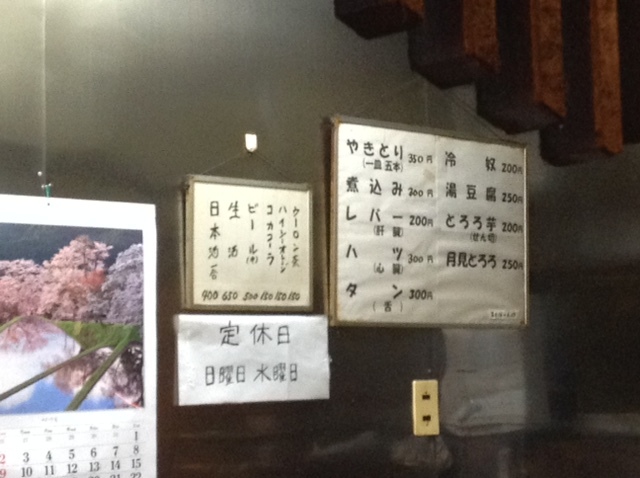 やきとり 350円
(一皿 五本)
煮込み 300円
レバー 200円
(肝臓)
ハツ 300円
(心臓)
タン 300円
(舌)
冷奴 200円
湯豆腐 250円
とろろ芋 200円
(せん切)
月見とろろ 250円
ウーロン茶 150
150
コカコーラ 150
ビール 500
生酒 650
日本酒 400
定休日
日曜日 水曜日
1
2 3 4 5 6 7 8
9 10 11 12 13 14 15